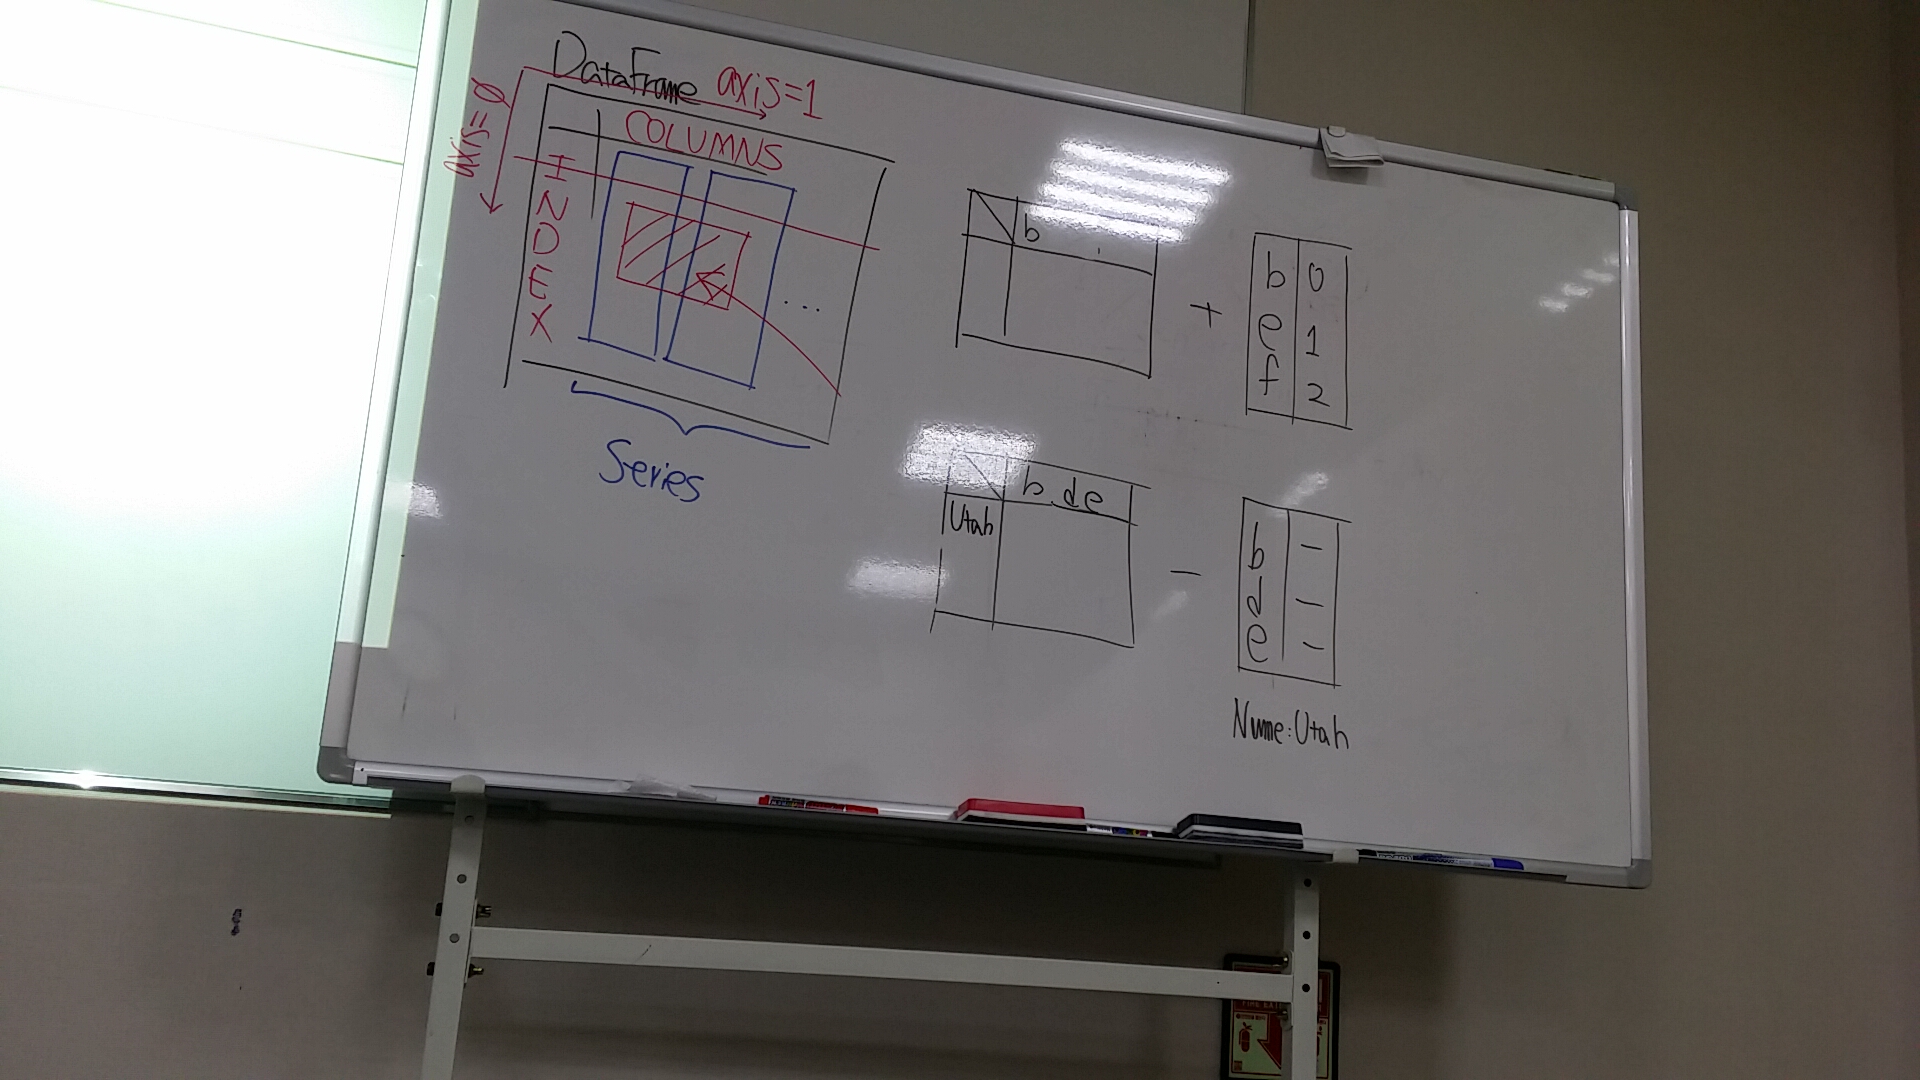 DataFrame axis=1
axis=0
COLUMNS
INDEX
...
Series
b
+
b 0
e 1
f 2
b d e
Utah
-
b -
d -
e -
Name: Utah